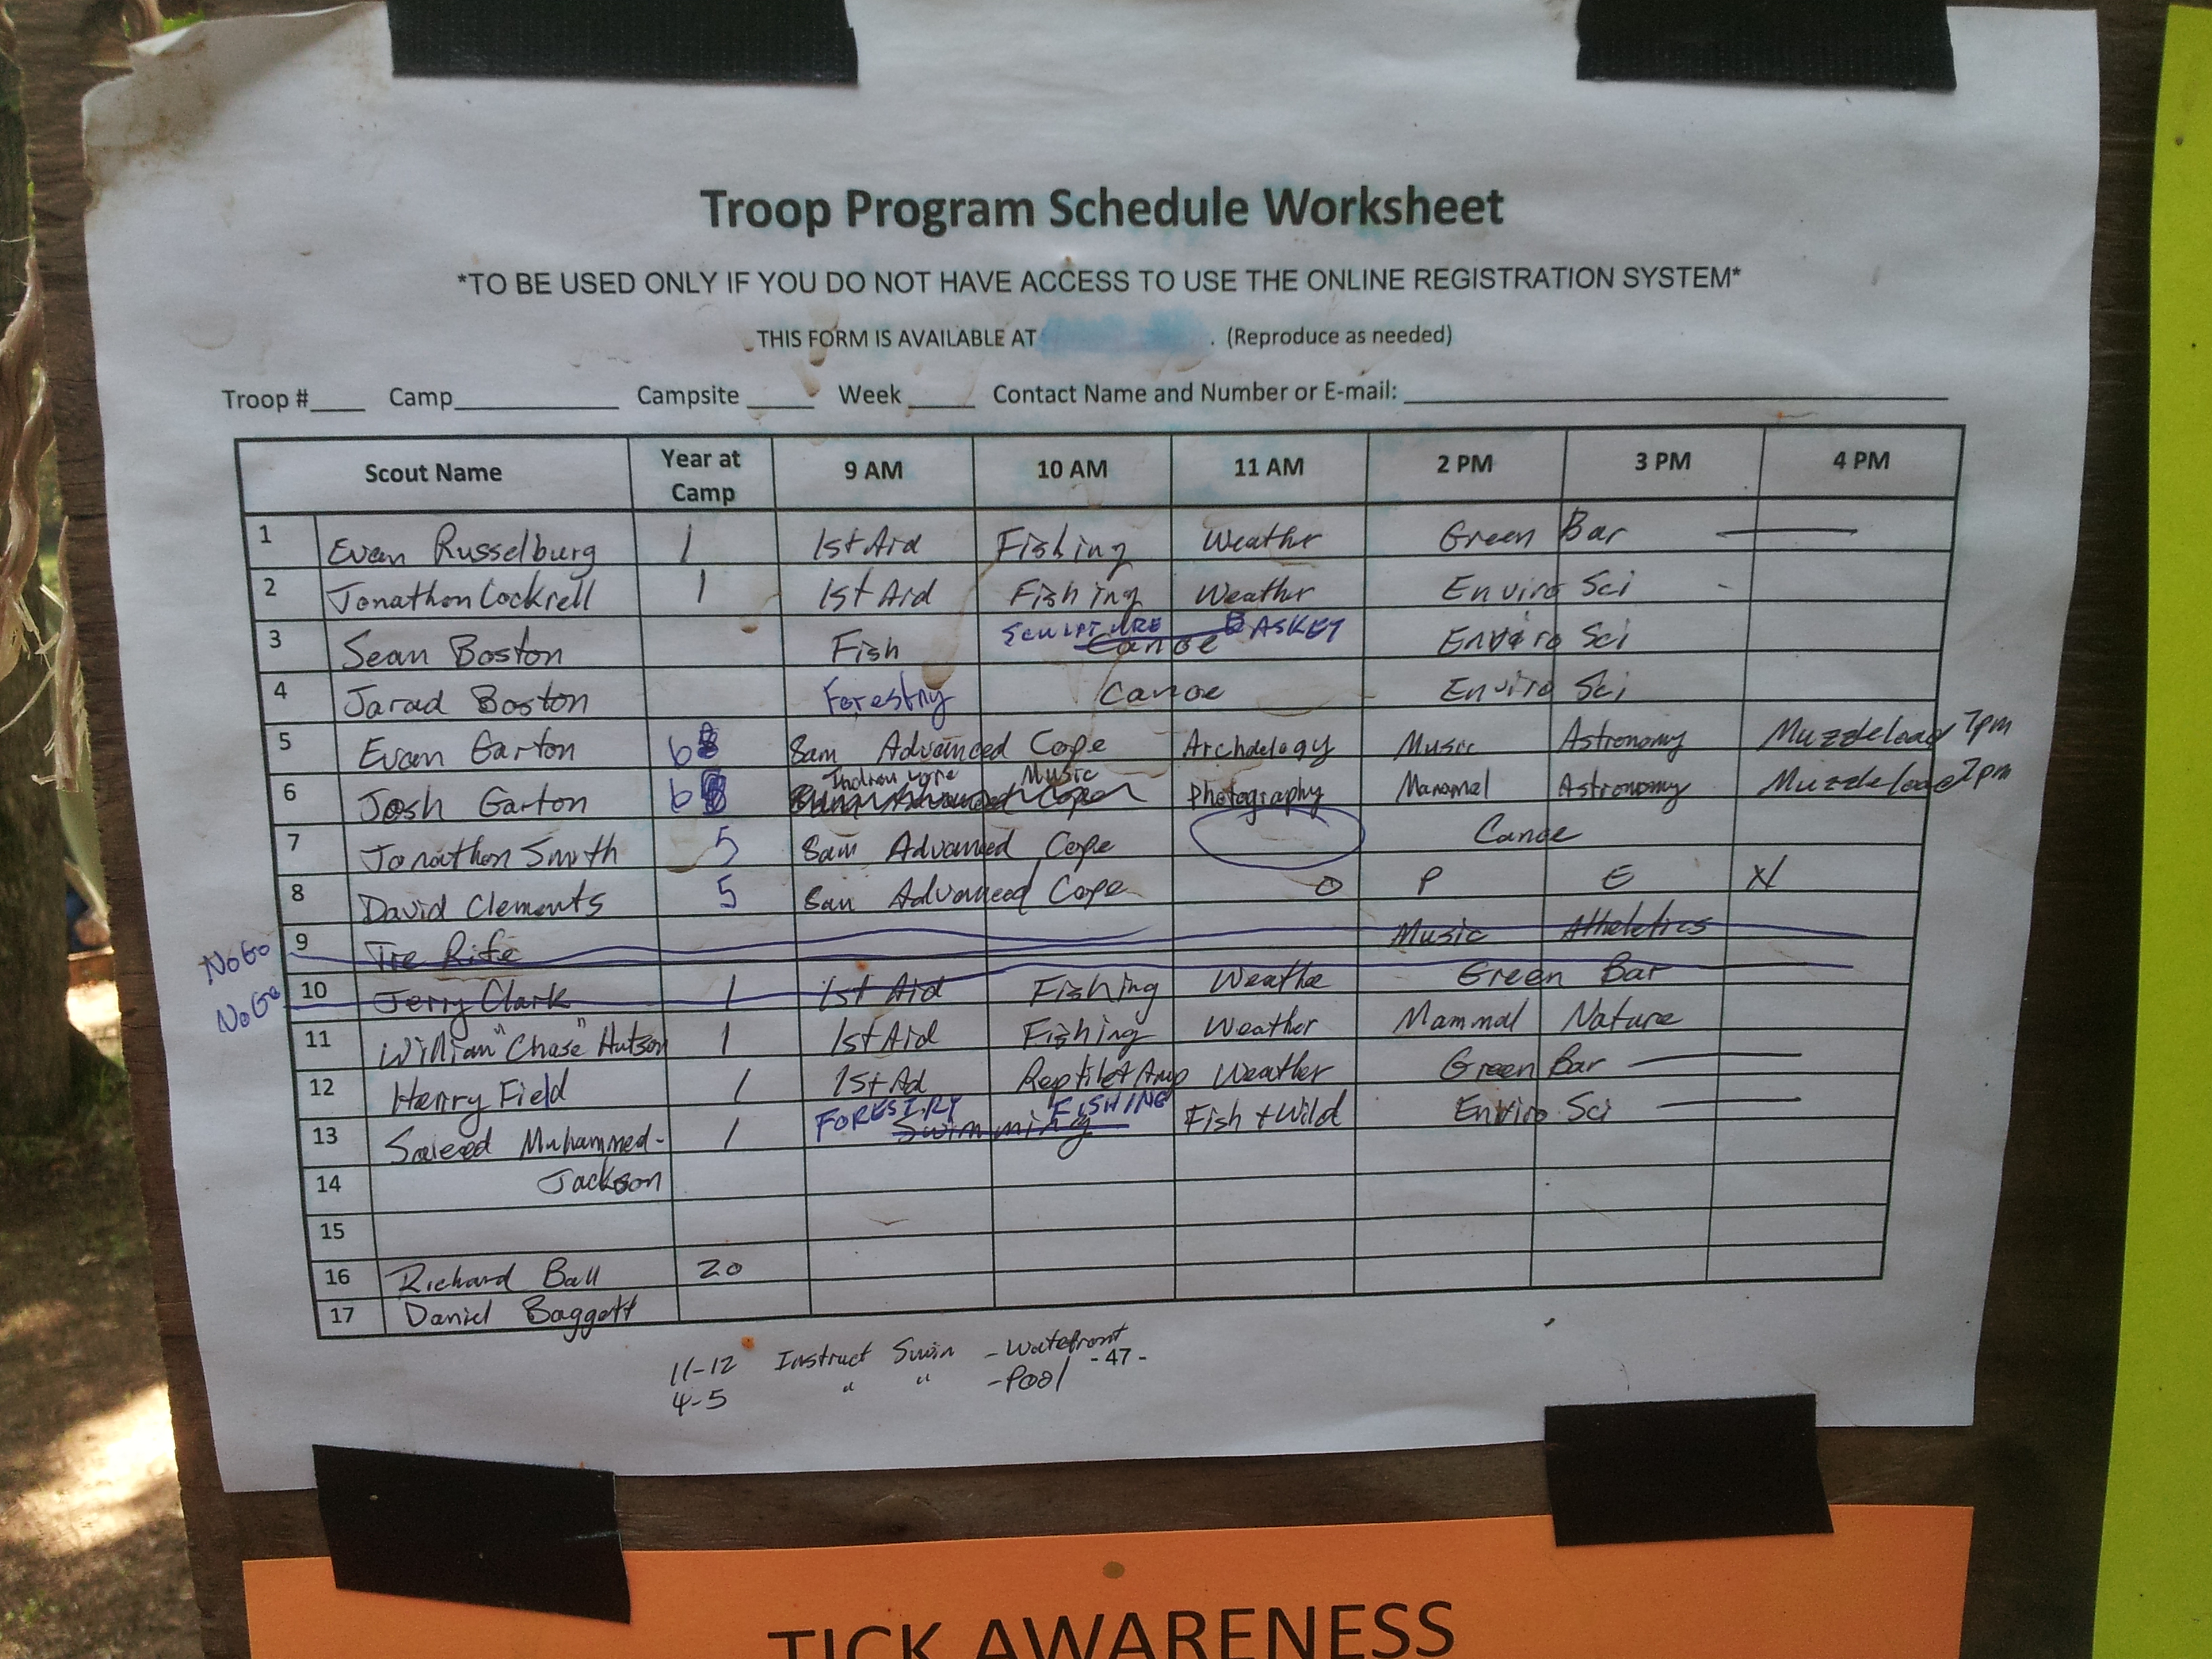 Troop Program Schedule Worksheet
*TO BE USED ONLY IF YOU DO NOT HAVE ACCESS TO USE THE ONLINE REGISTRATION SYSTEM*
THIS FORM IS AVAILABLE AT . (Reproduce as needed)
Troop #____ Camp____________ Campsite _____ Week _____ Contact Name and Number or E-mail: ____________
Scout Name Year at Camp 9 AM 10 AM 11 AM 2 PM 3 PM 4 PM
1 Evan Russelburg 1 1st Aid Fishing Weather Green Bar
2 Jonathon Cockrell 1 1st Aid Fishing Weather Enviro Sci
SCULPTURE BASKET
3 Sean Boston Fish Canoe Enviro Sci
4 Jarad Boston Forestry Canoe Enviro Sci
5 Evan Garton 6 8am Advanced Cope Archaelogy Music Astronomy Muzzleload 7pm
Music
6 Josh Garton 6 Cope Photography Mammal Astronomy Muzzleload 7pm
7 Jonathon Smith 5 8am Advanced Cope Canoe
8 David Clements 5 8am Advanced Cope O P E N
NoGo 9 Tre Rife Music Atheletics
NoGo 10 Jerry Clark 1 1st Aid Fishing Weathe Green Bar
11 William "Chase" Hutson 1 1st Aid Fishing Weather Mammal Nature
12 Henry Field 1 1st Ad Reptile+Amp Weather Green Bar
FORESTRY FISHING
13 Saleed Muhammed- 1 Swimming Fish + Wild Enviro Sci
14 Jackson
15
16 Richard Ball 20
17 Daniel Baggett
11-12 Instruct Swim - Watefront
-47-
4-5 " " - Pool
TICK AWARENESS